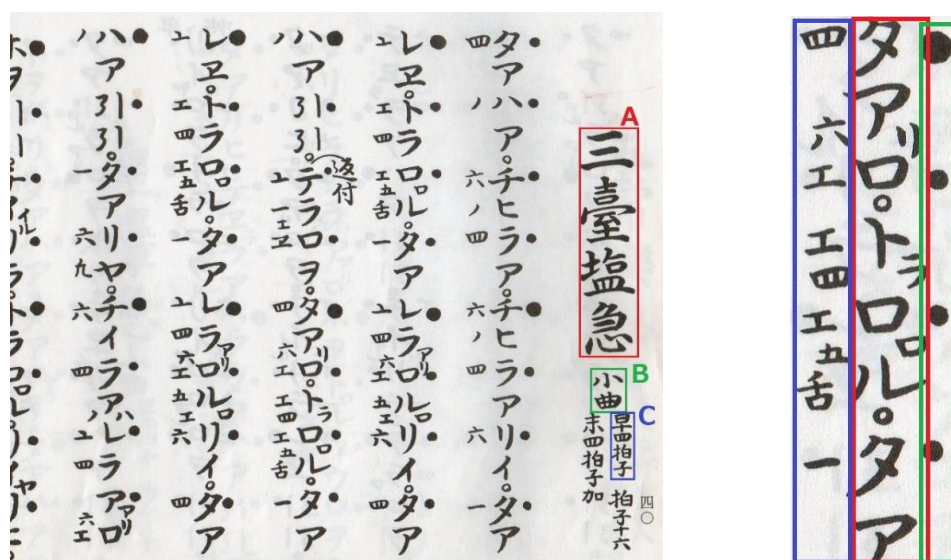 A
三臺塩急
B
小曲
C
早四拍子 拍子十六
末四拍子加
四〇
タアハア。チヒラア。チヒラアリイ。タア
四ノ六ノ四六ノ四六一
レヱ。トラロロル。タアレラアリロルロリイ。タア
ユエ四エ五舌一ユ四六エ五エ六四
返付
ハア引引。テラロヲ。タアリロ。トラロロル。タア
ノユ一エヱ四六エエ四エ五舌一
レヱ。トラロロル。タアレラアリロルロリイ。タア
ユエ四エ五舌一ユ四六エ五エ六四
ハア引引。タアリヤ。チイラアハレラアアリロ
ノ一六九六四ノユ四六エ
タアリロ。トラロロル。タア
四六エエ四エ五舌一